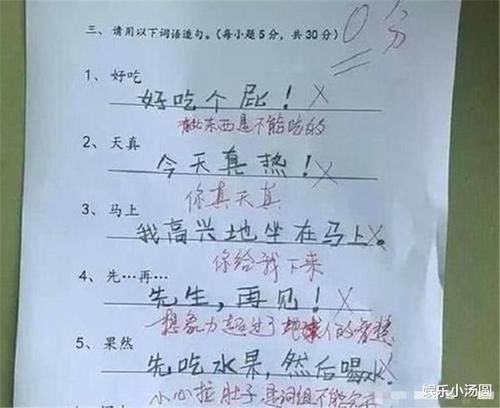 0分
三、请用以下词语造句。(每小题5分,共30分)
1、好吃
好吃个屁!
有些东西是不能吃的
2、天真
今天真热!
你真天真
3、马上
我高兴地坐在马上。
你给我下来
4、先…再…
先生,再见!
想象力超过了地球人的智慧
5、果然
先吃水果,然后喝水
小心拉肚子 是词组不能分开
娱乐小汤圆